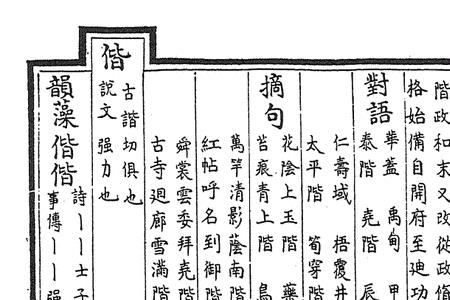 階政和末又改從政
格始備自開府至廸功
對語
華蓋 禹甸 甲
泰階 堯階 辰
仁壽域 梧覆井
太平階 筍穿階
摘句
花陰上玉階 藥
苔痕青上階 鳥
萬竿清影蔭南階
紅帖呼名到御階
舜裳雲委拜堯階
古寺廻廊雪滿階
偕
古諧切俱也
說文 强力也
韻藻 偕偕
詩丨丨士子
事傳丨丨强